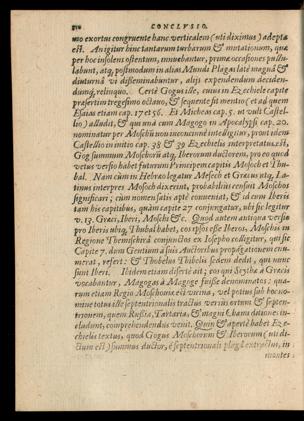 CONCLVSIO.
mo exortus congruente hanc verticalem (uti diximus) adepta
est. An igitur hinc tantarum turbarum & mutationum, quæ
per hoc insolens ostentum, innuebantur, primæ occasiones pullu-
labunt, atq; postmodum in alias Mundi Plagas latè magnâ &
diuturnâ vi disseminabuntur, alijs expendendum deciden-
dumq; relinquo. Certè Gogus ille, cuius in Ezechiele capite
præsertim tregesimo octauo, & sequente fit mentio (et ad quem
Esaias etiam cap. 17 et 56. Et Micheas cap. 5. ut vult Castel-
lio) alludit, & qui unà cum Magogo in Apocalypsi cap. 20.
nominatur per Moschū non inconcinnè intelligitur, prout idem
Castellio in initio cap. 38 & 39 Ezechielis interpretatus est,
Gog summum Moschorū atq; Iberorum ductorem, pro eo quod
vetus versio habet futurum Principem capitis Mosoch et Thu-
bal. Nam cùm in Hebræo legatur Mesech et Græcus atq; La-
tinus interpres Mosoch dixerint, probabilius censuit Moschos
significari; cùm nomen satis aptè conueniat, & id cum Iberis
tam his capitibus, quàm capite 27 coniungatur, ubi sic legitur
v. 13. Græci, Iberi, Moschi &c. Quod autem antiqua versio
pro Iberis ubiq; Thubal habet, eos ipsos esse Iberos, Moschis in
Regione Themschirâ coniunctos ex Iosepho colligitur, qui sic
Capite 7. dum Gentium à suis Auctoribus propagationem enu-
merat, refert: & Thobelus Thobelis sedem dedit, qui nunc
sunt Iberi. Ibidem etiam disertè ait; eos qui Scythæ à Græcis
vocabantur, Magogas à Magoge fuisse denominatos: qua-
rum etiam Regio Moschouiæ est vicina, vel potius sub hoc no-
mine totus ille septentrionalis tractus versùs ortum & septen-
trionem, quem Russia, Tartaria, & magni Chami ditiones in-
cludunt, comprehendendus venit. Quin & apertè habet Eze-
chielis textus, quod Gogus Moschorum & Iberorum (uti di-
ctum est) summus ductor, è septentrionali plagâ extractus, in
montes